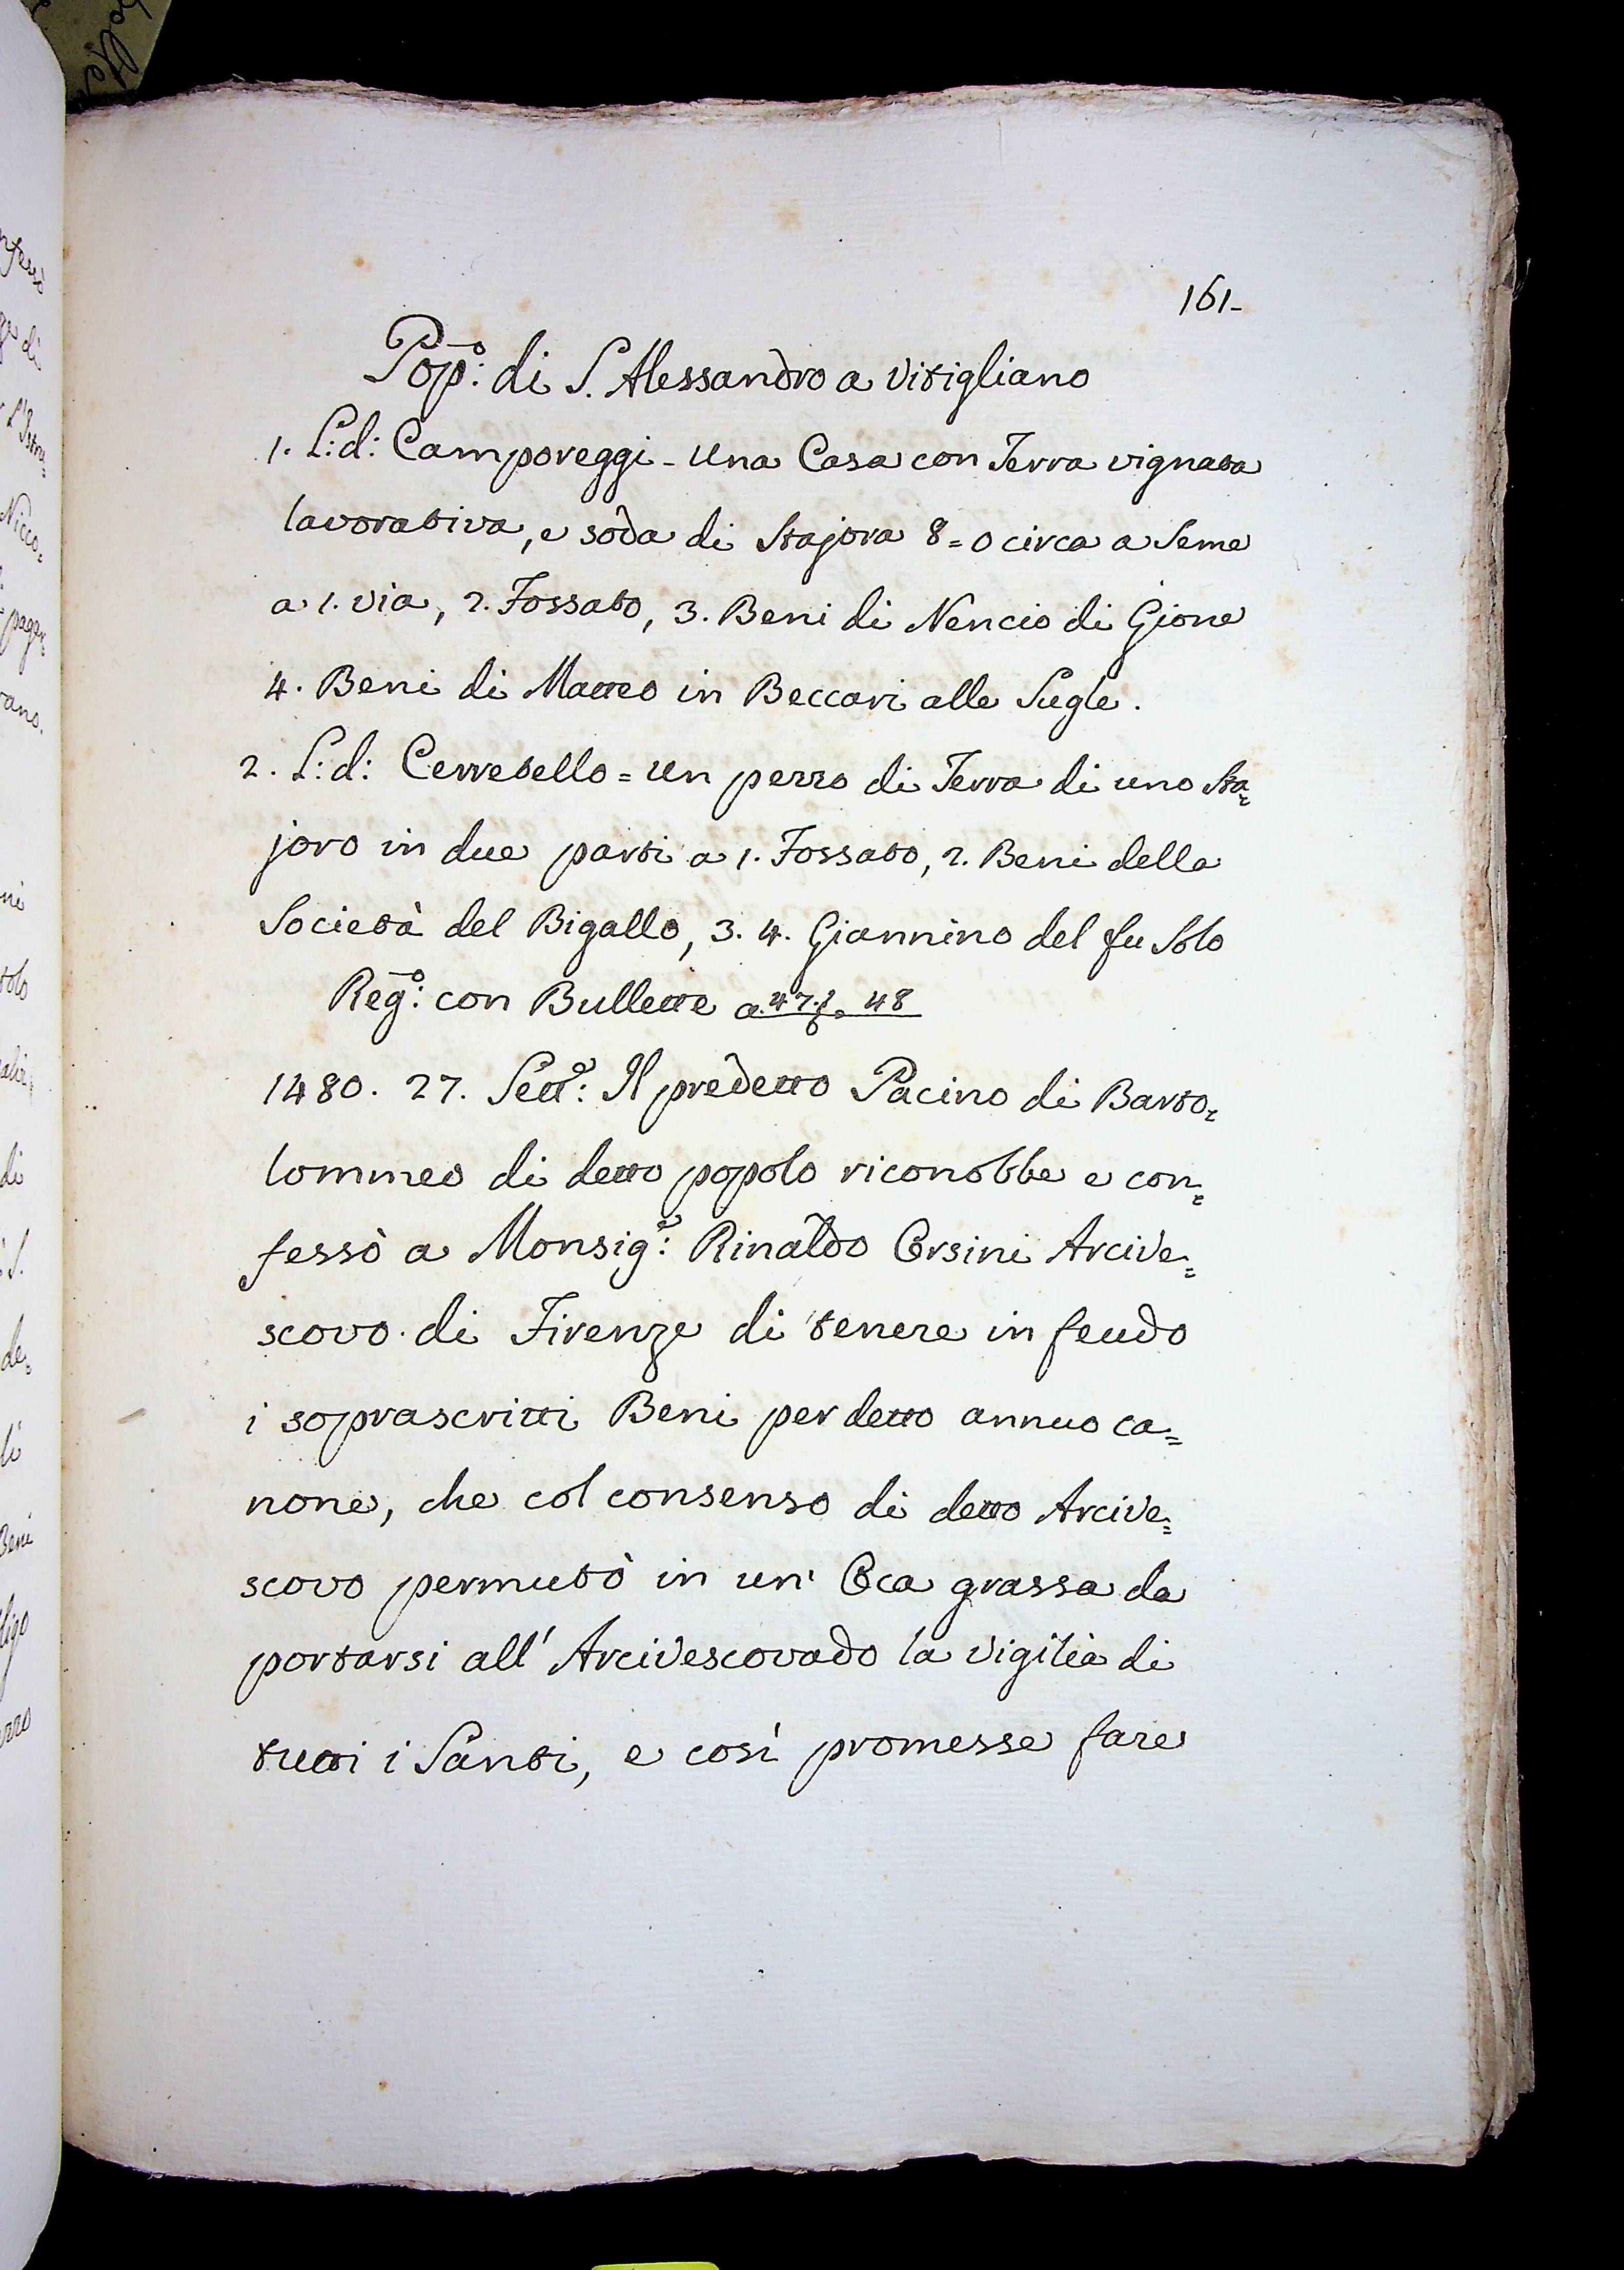 161-
Pop:º di S. Alessandro a Vitigliano
1. L: d: Camporeggi - Una Casa con Terra vignata
lavorativa, e soda di Stajora 8=0 circa a Seme
a 1. via, 2. Fossato, 3. Beni di Nencio di Gione
4. Beni di Matteo in Beccari alle Sugle.
2. L: d: Cerretello = Un pezzo di Terra di uno Sta=
joro in due parti a 1. Fossato, 2. Beni della
Società del Bigallo, 3. 4. Giannino del fu Solo
Reg:º con Bullette a 47. 48
1480. 27. Sett:e Il predetto Pacino di Barto=
lommeo di detto popolo riconobbe e con=
fessò a Monsig:e Rinaldo Orsini Arcive=
scovo di Firenze di tenere in feudo
i soprascritti Beni per detto annuo ca=
none, che col consenso di detto Arcive=
scovo permutò in un' Oca grassa da
portarsi all' Arcivescovado la Vigilia di
tutti i Santi, e così promesse fare